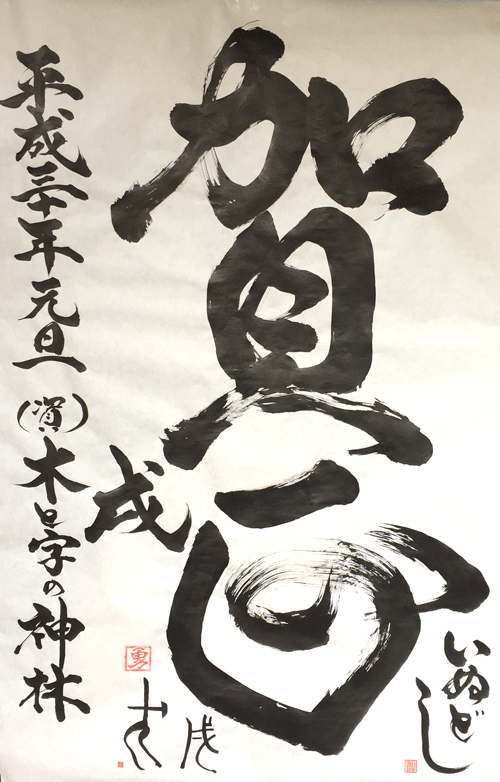 賀正
いぬどし
戌
平成三十年元旦
(賀)
木と字の神林
勇
戌